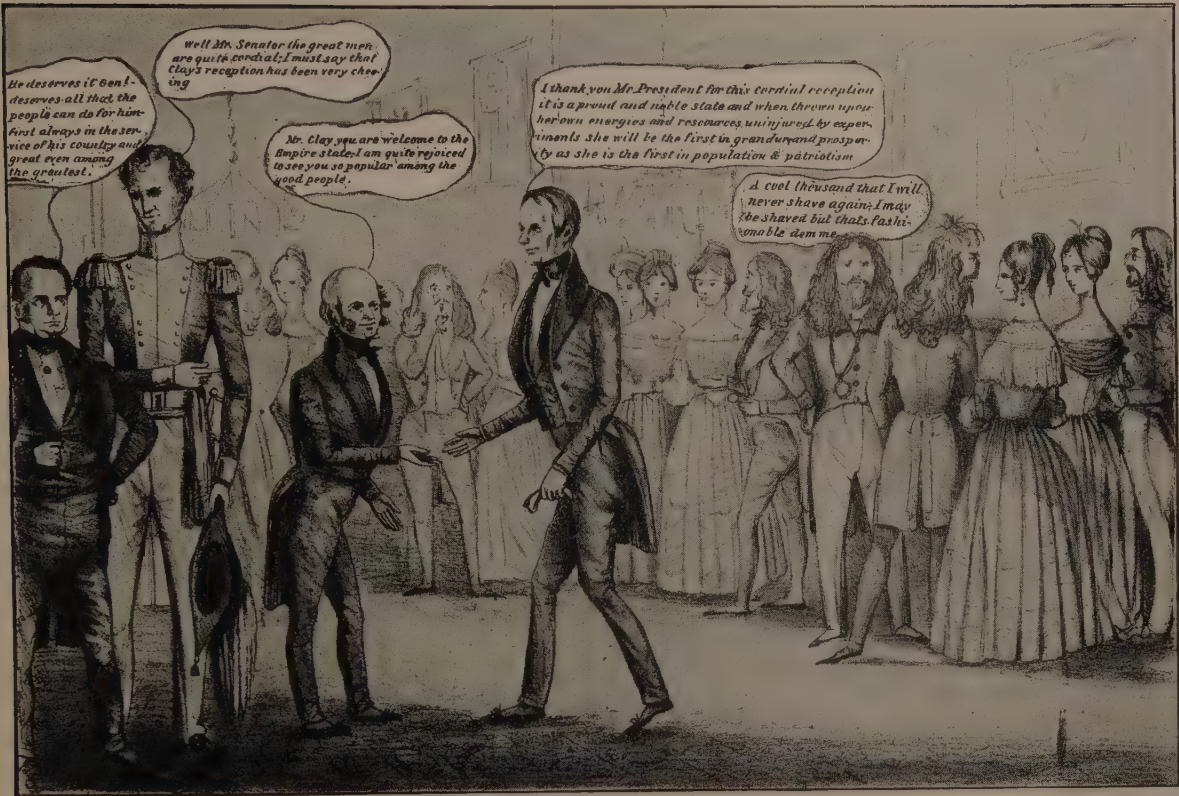 He deserves it Genl-
deserves all that the
people can do for him-
first always in the ser-
vice of his country and
great even among
the greatest.
Well Mr. Senator the great men
are quite cordial; I must say that
Clay's reception has been very chee-
ing
Mr. Clay you are welcome to the
Empire state; I am quite rejoiced
to see you so popular among the
good people.
I thank you Mr. President for this cordial reception
it is a proud and noble state and when thrown upon
her own energies and resources, uninjured by exper-
iments she will be the first in grandure and prosper-
ity as she is the first in population & patriotism
A cool thousand that I will
never shave again; I may
be shaved but thats fashi-
onable demme